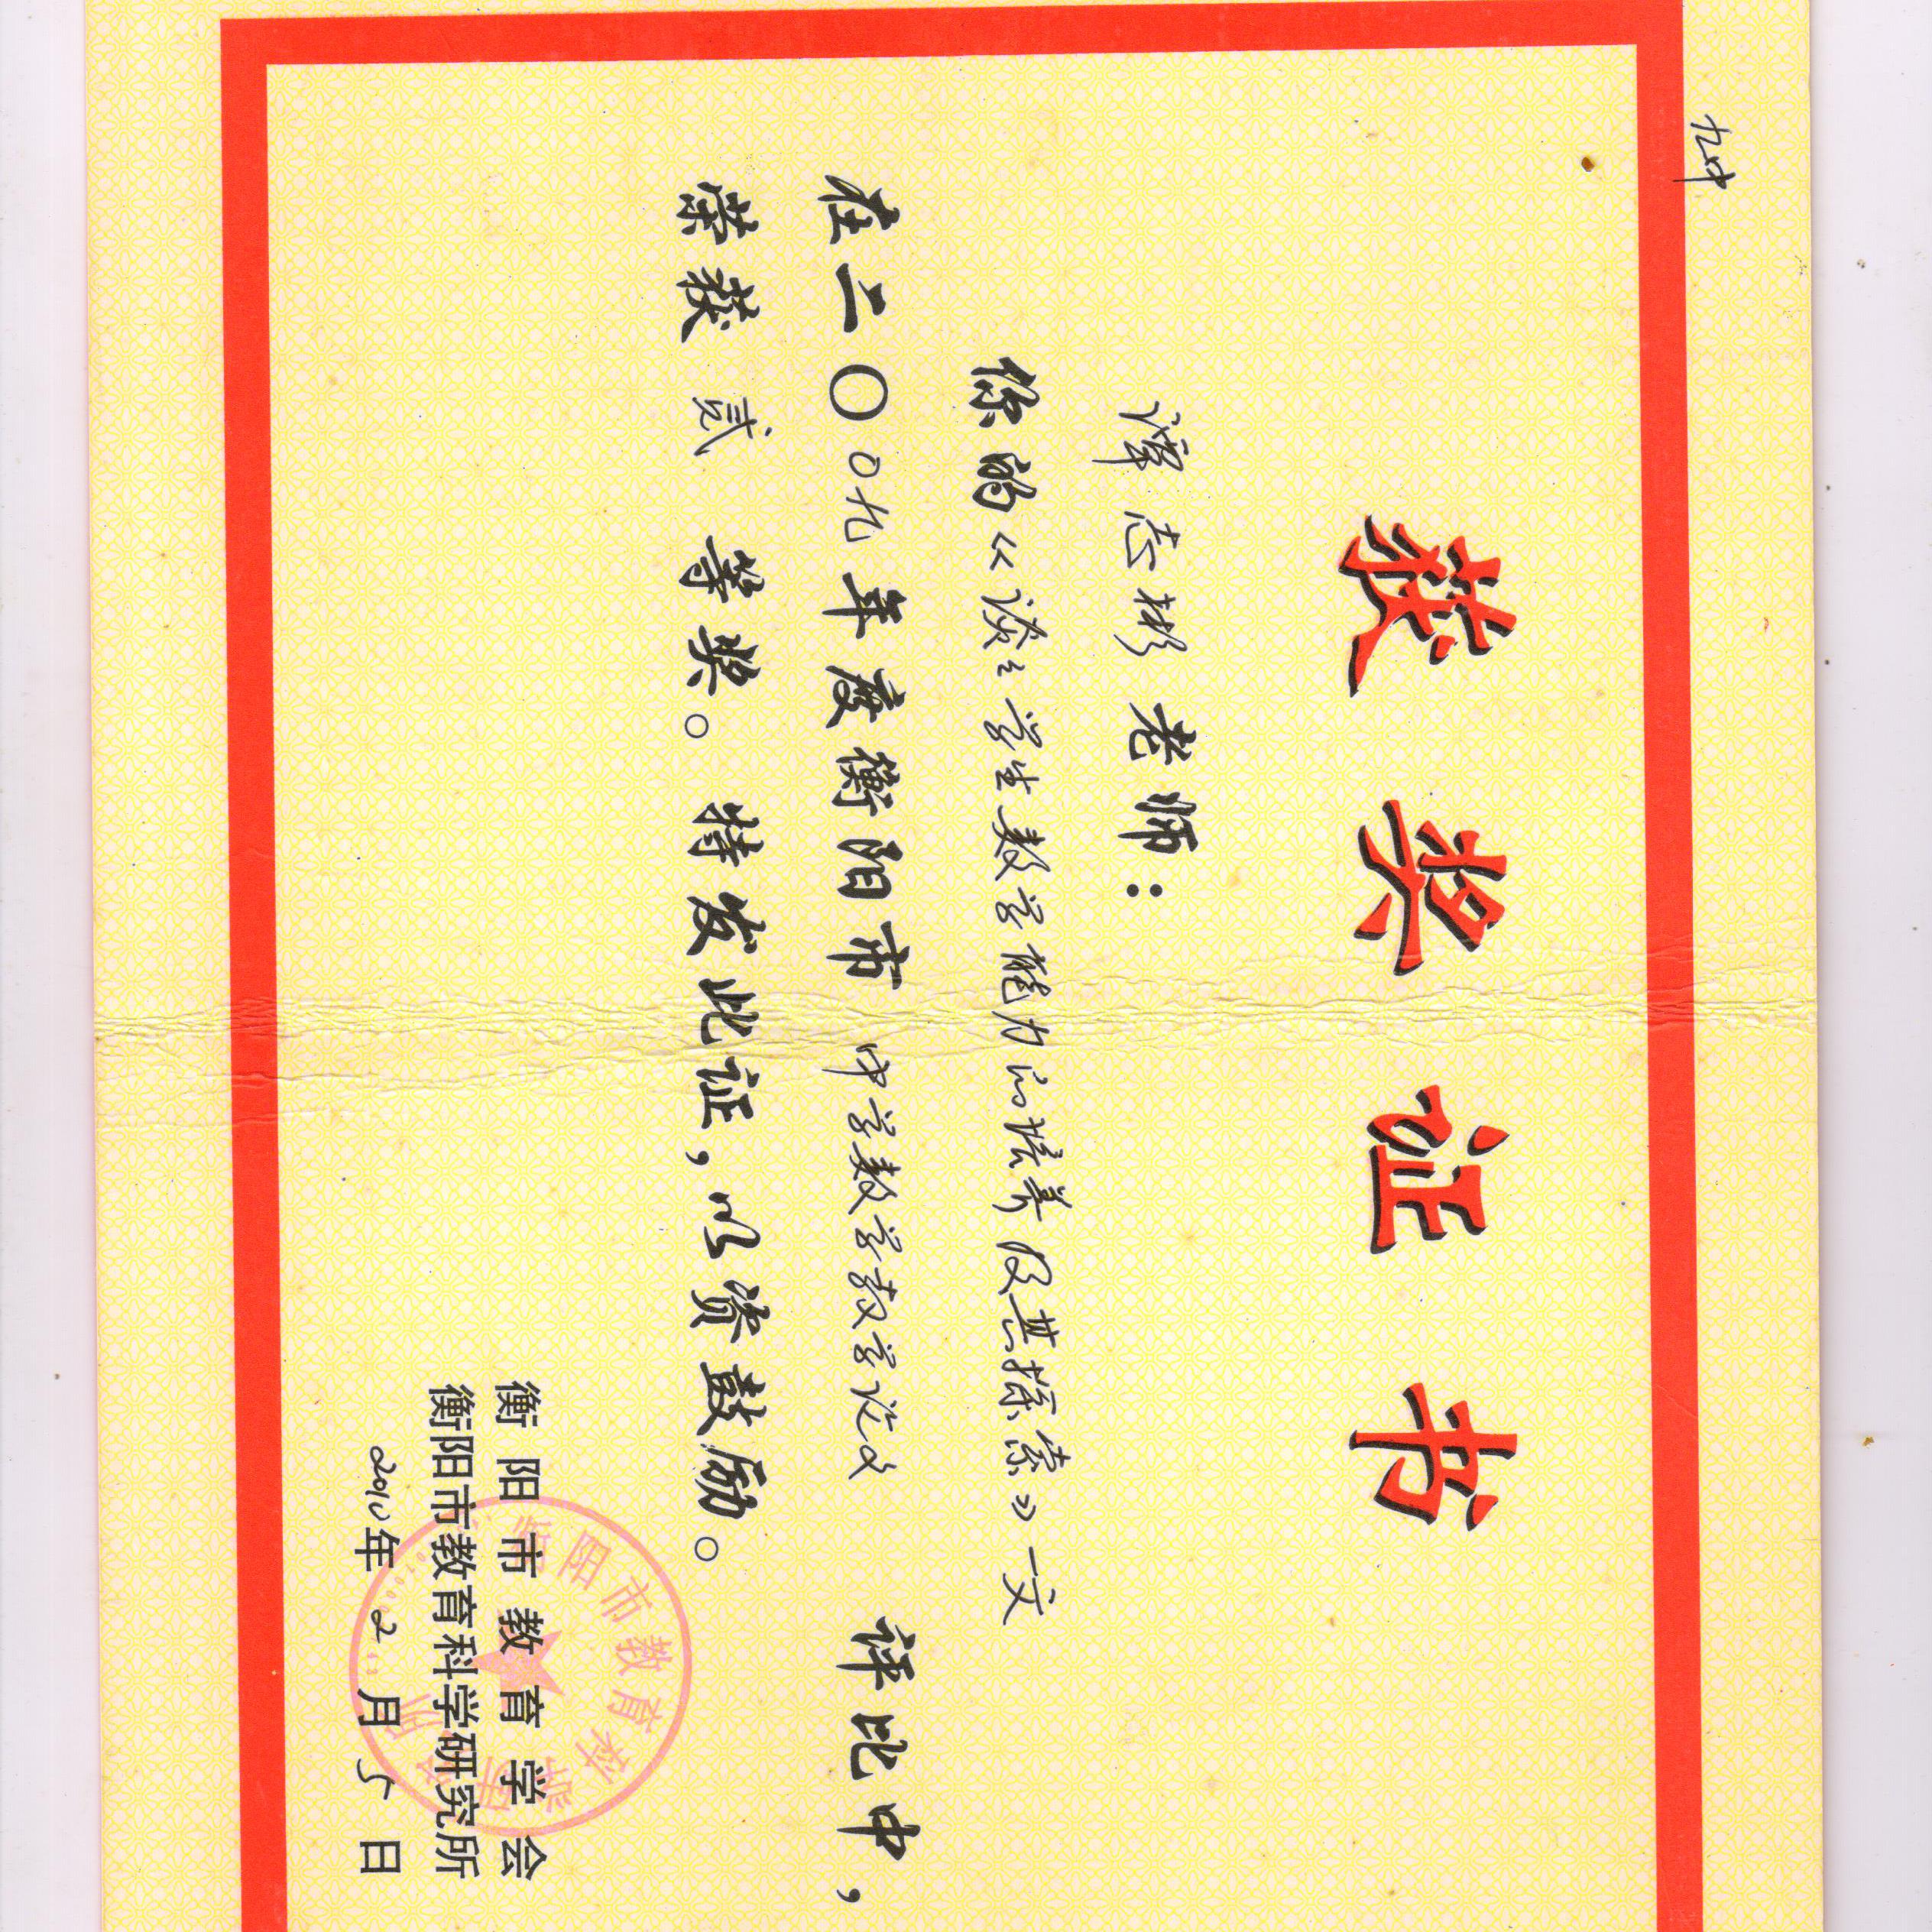 九中
获奖证书
谭志彬老师：
你的《谈谈学生数学能力的培养及其探索》一文
在二〇〇九年度衡阳市中学数学教学论文评比中，
荣获贰等奖。特发此证，以资鼓励。
衡阳市教育学会
衡阳市教育科学研究所
2010年2月5日